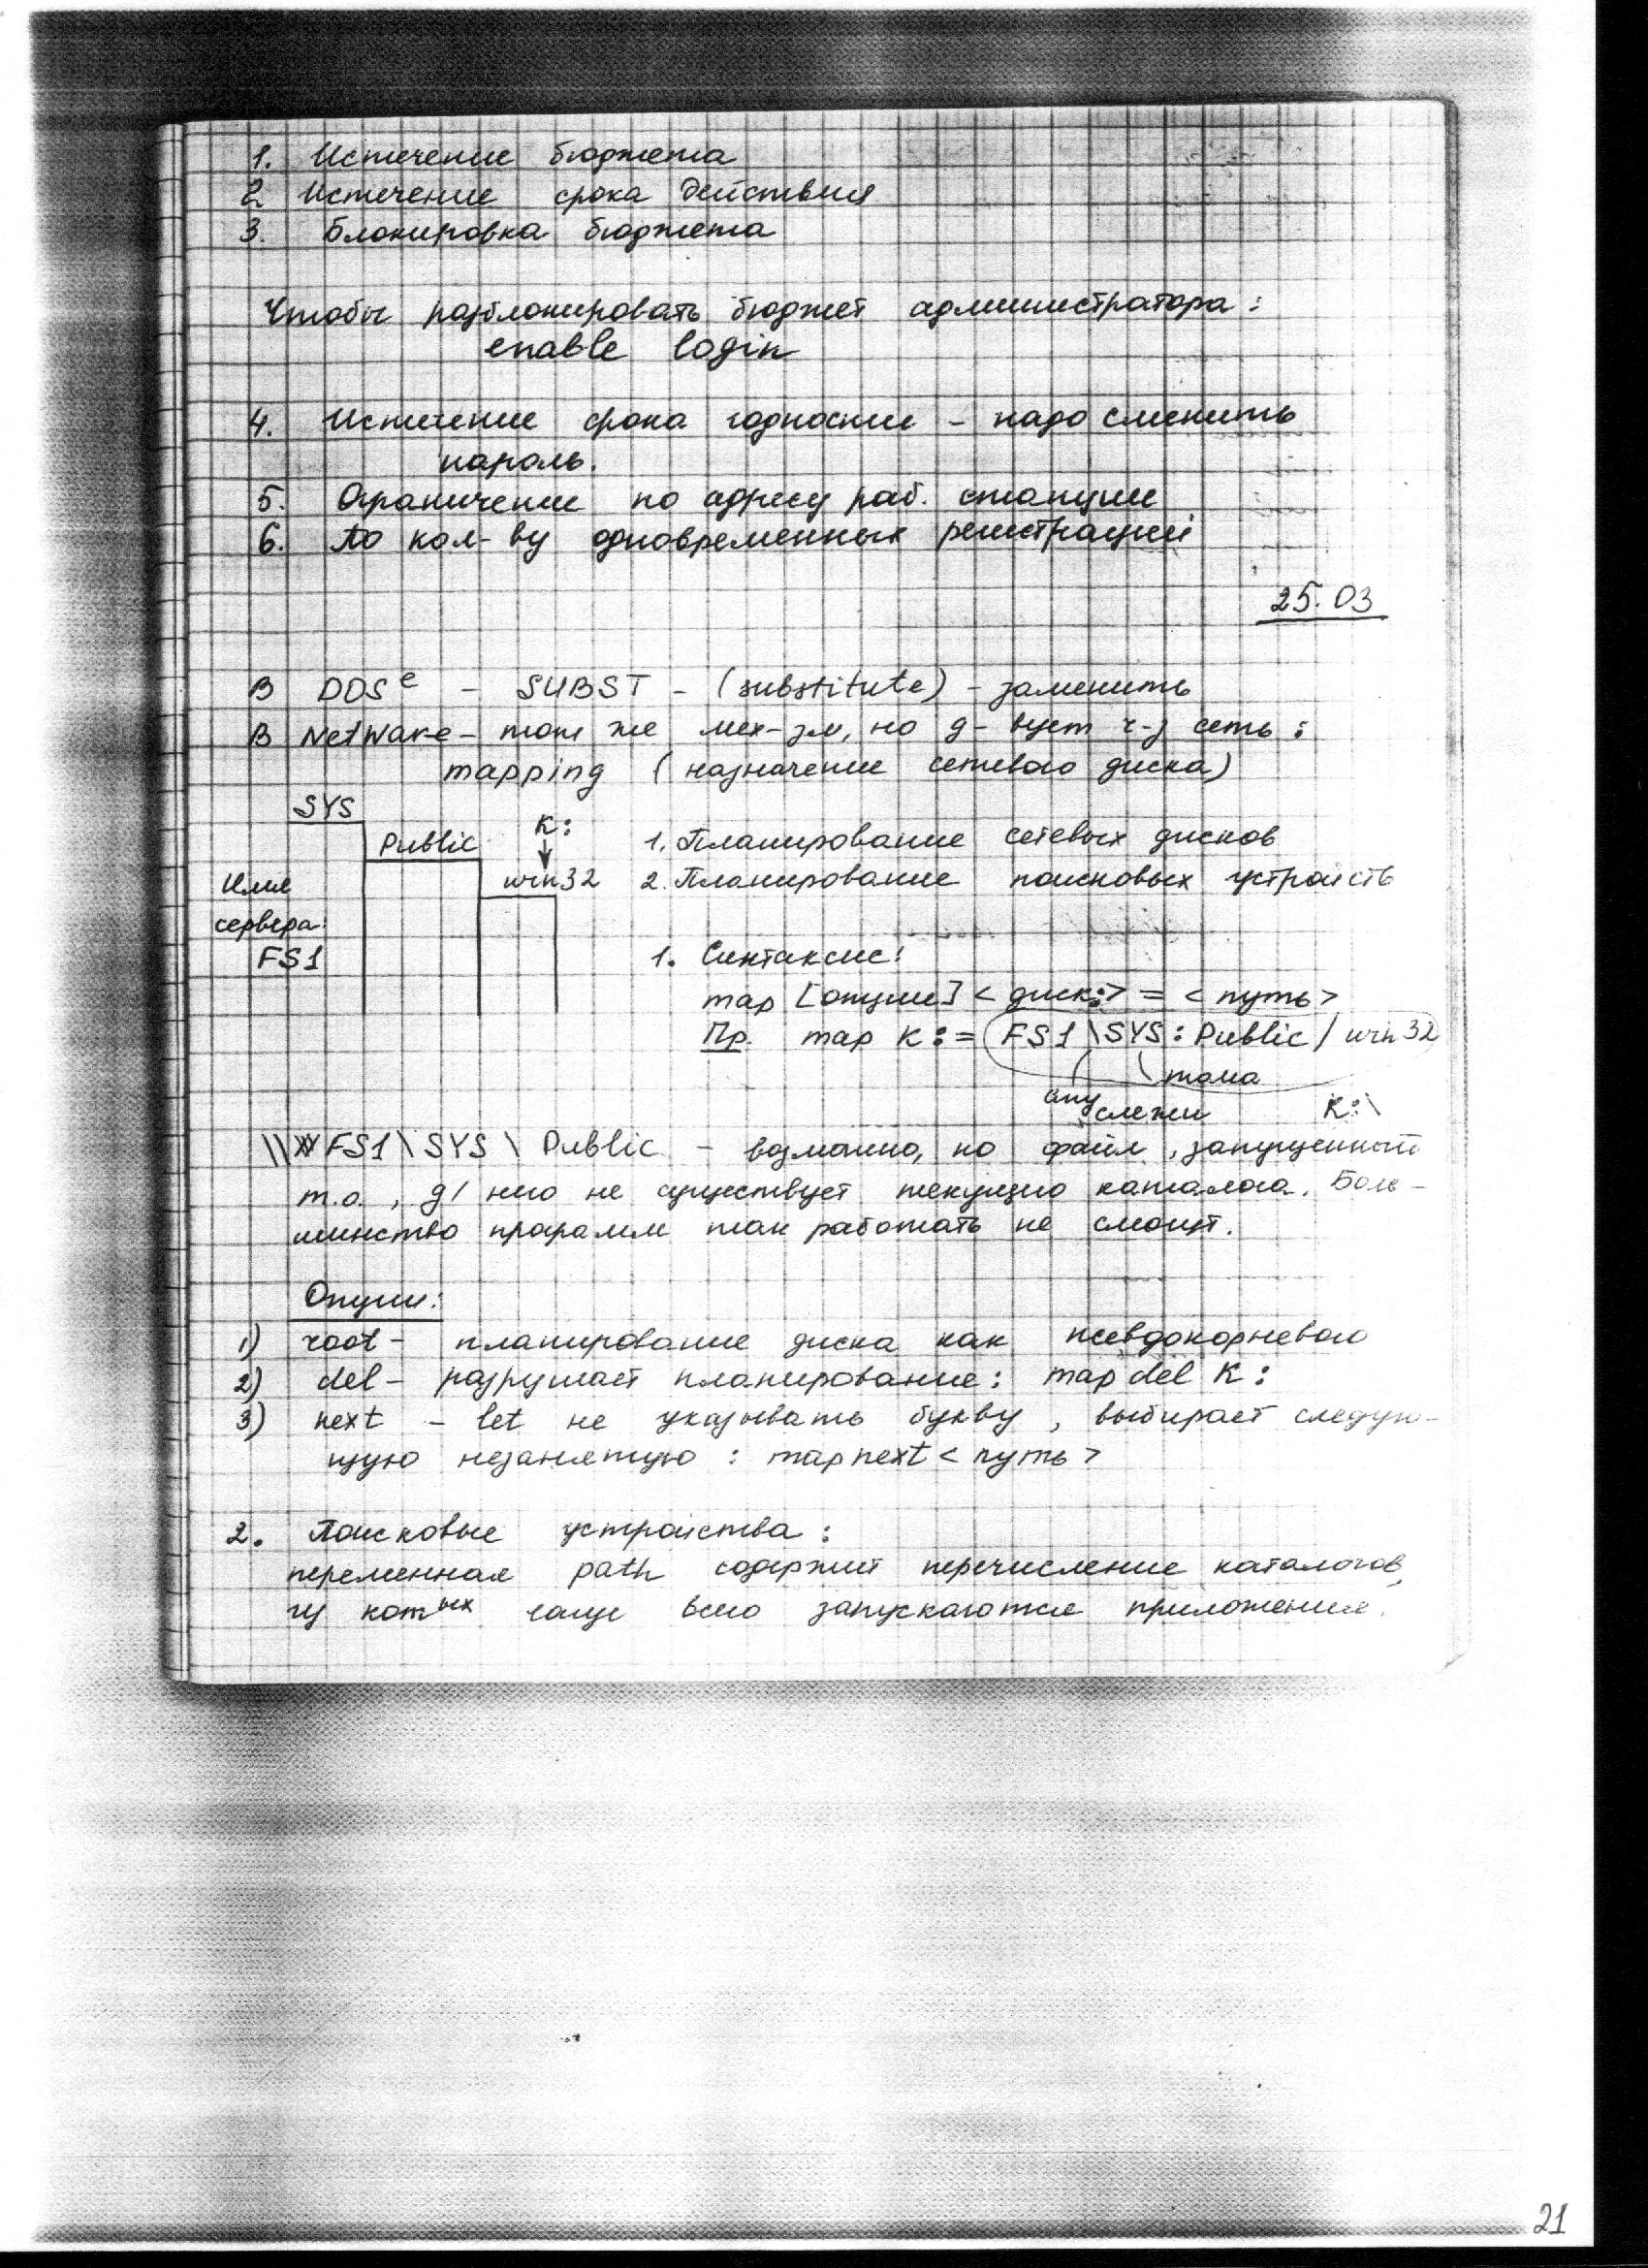 1. Истечение бюджета
2 Истечение срока действия
3. Блокировка бюджета
Чтобы разблокировать бюджет администратора:
enable login
4. Истечение срока годности – надо сменить
пароль.
5. Ограничение по адресу раб. станции
6. По кол-ву одновременных регистраций
25.03
В DOSе – SUBST – (substitute) – заменить
В NetWare – тот же мех-зм, но д-вует ч-з сеть:
mapping (назначение сетевого диска)
SYS
Public
K:
win32
Имя
сервера:
FS1
1. Планирование сетевых дисков
2. Планирование поисковых устройств
1. Синтаксис:
map [опции] <диск:> = <путь>
Пр. map K:= FS1\SYS: Public/win32
тома
слеши
K:\
\\FS1\SYS\Public – возможно, но файл, запущенный
т.о., д/ него не существует текущего каталога. Боль-
шинство программ так работать не смогут.
Опции:
1) root – планирование диска как псевдокорневого
2) del – разрушает планирование: map del K:
3) next – let не указывать букву, выбирает следую-
щую незанятую: map next <путь>
2. Поисковые устройства:
переменная path содержит перечисление каталогов,
из котых чаще всего запускаются приложения.
21